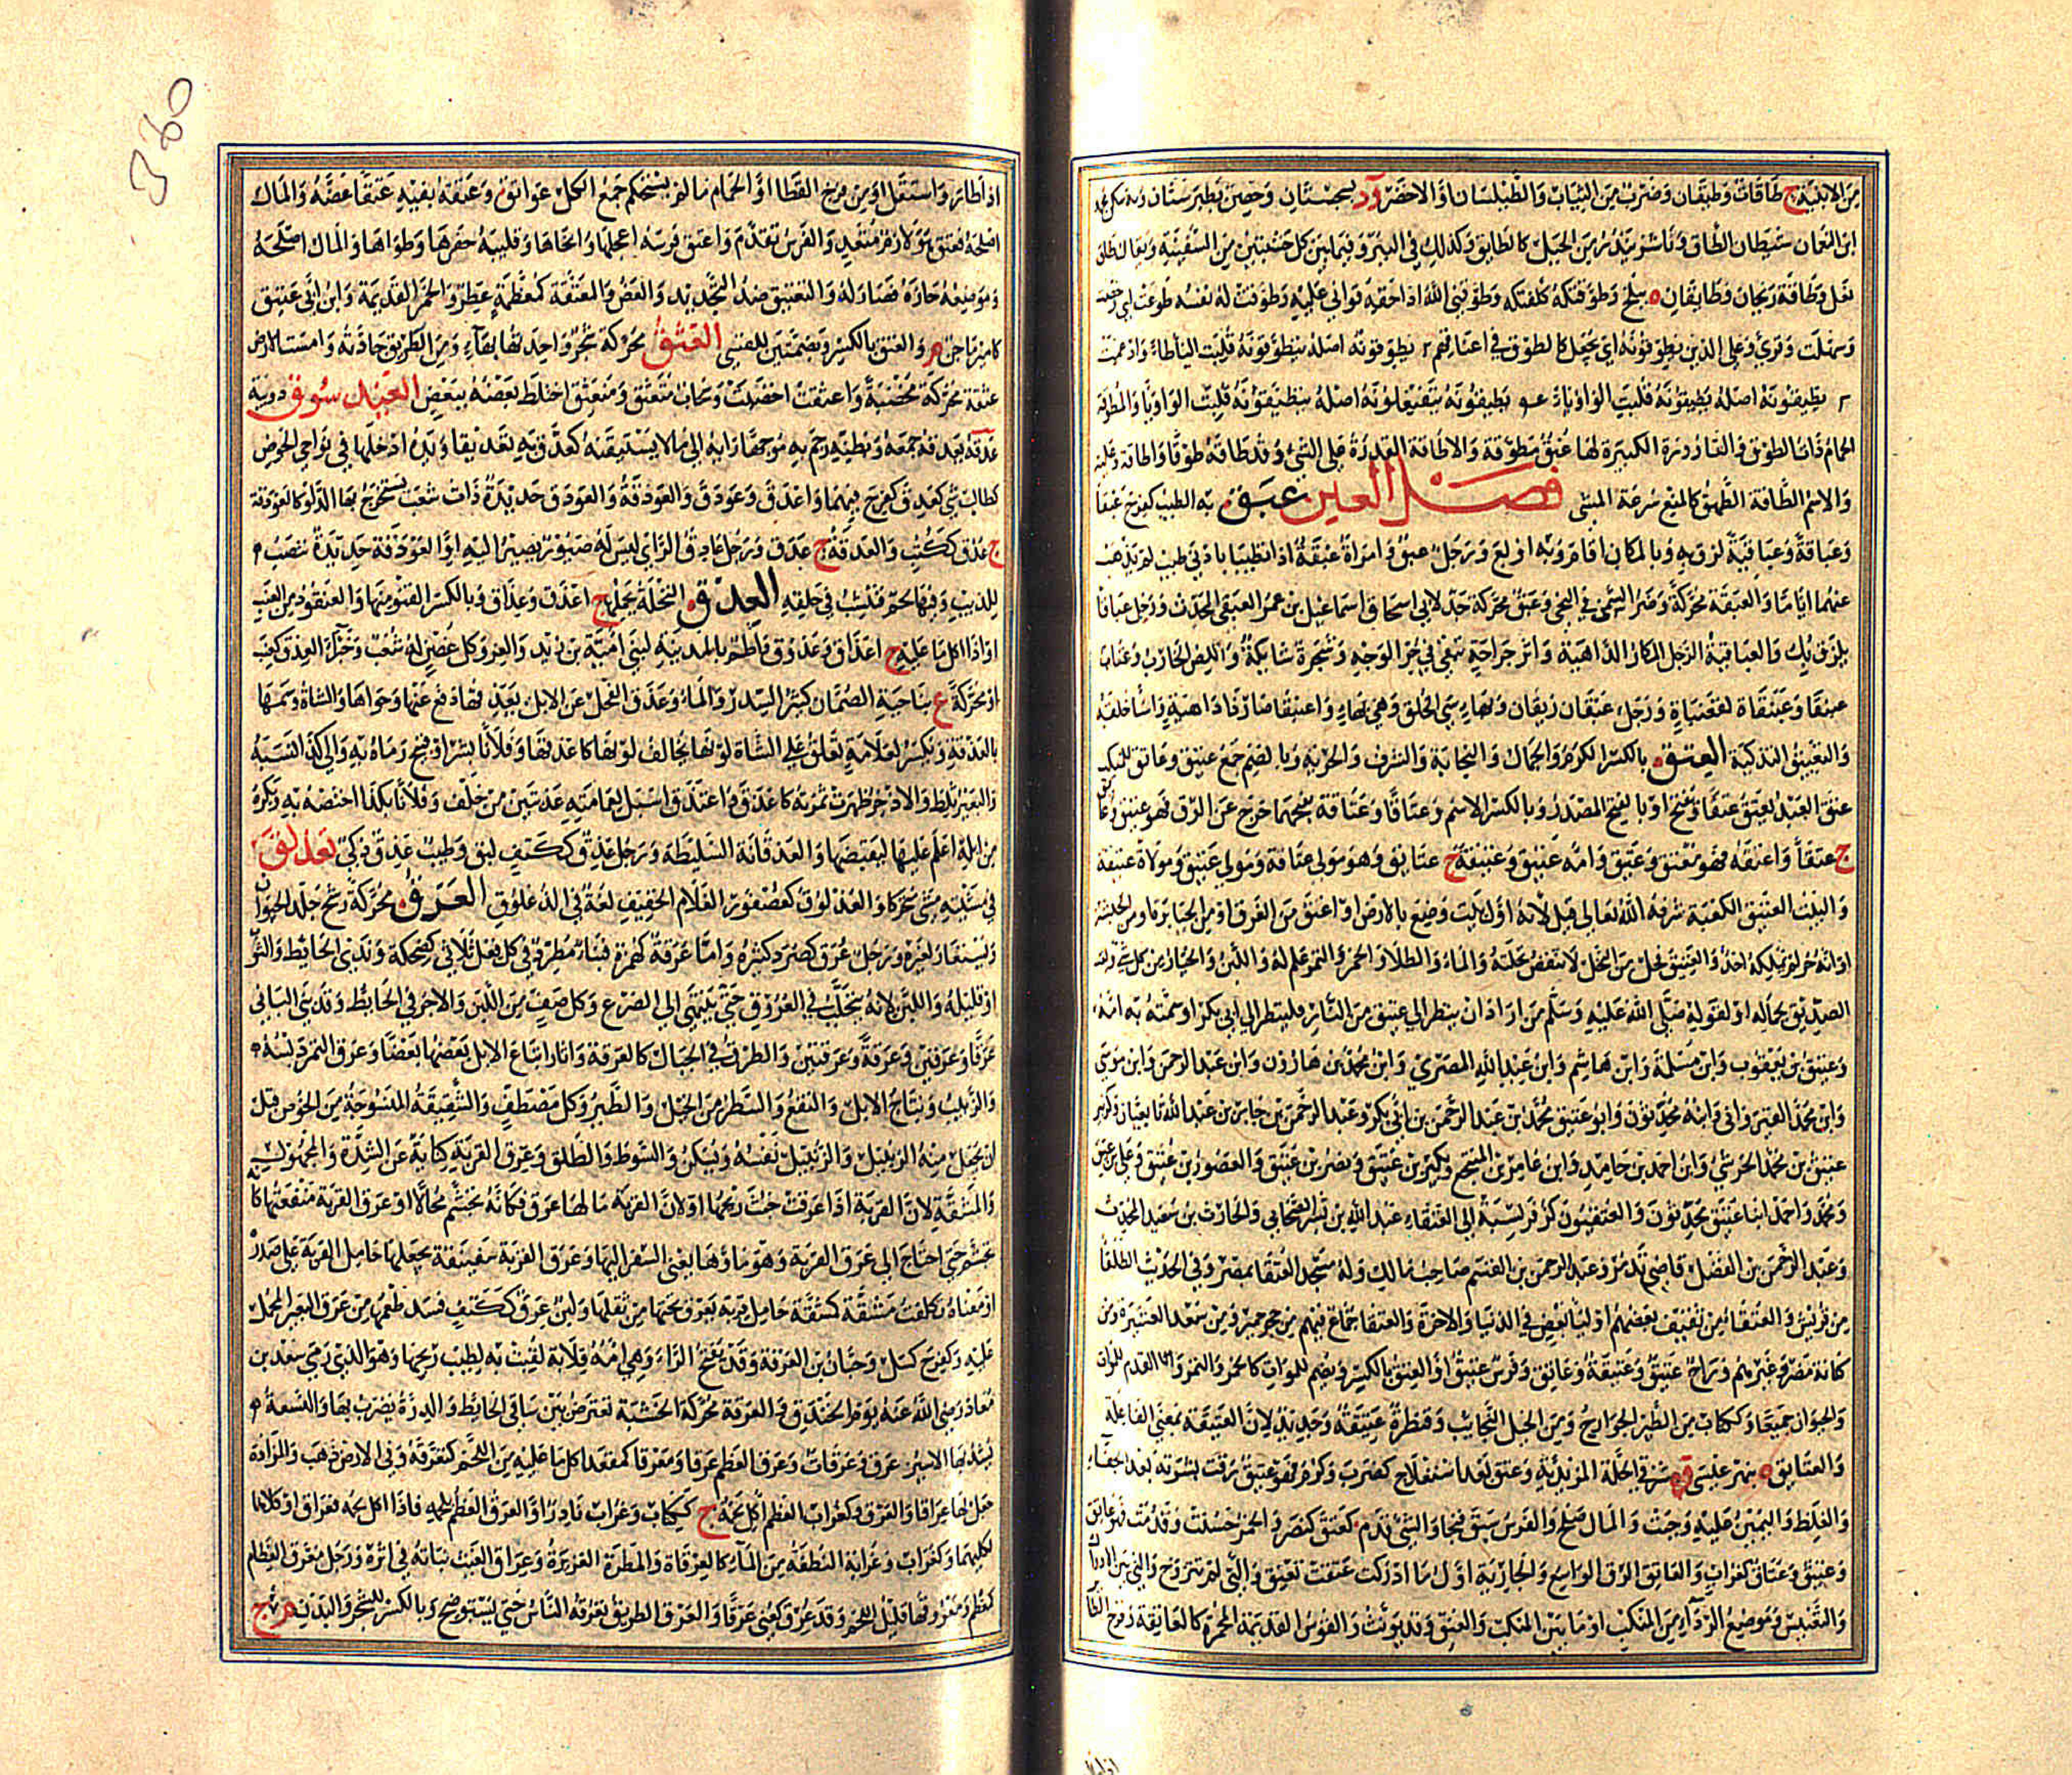 من الابنية ج طاقات وطيقان وضرب من الثياب والطيلسان او الاخضر ود بسجستان وحصن بطبرستان وبه سكن محمد
ابن النعمان شيطان الطاق وناشز يندر من الجبل كالطائق وكذلك في البئر وفيما بين كل خشبتين من السفينة ويقال طاق
نعل وطاقة ريحان وطائقان ه ببلخ وطوقتكه كلفتكه وطوقني الله اداء حقه قواني عليه وطوقت له نفسه طوعت اي رخصت
وسهلت وقرئ وعلى الذين يطوقونه اي يجعل كالطوق في اعناقهم يطوقونه اصله يتطوقونه قلبت التاء طاء وادغمت
يطيقونه اصله يطيوقونه قلبت الواو ياء يطيقونه يتفيعلونه اصله يتطيوقونه قلبت الواو ياء والمطوقة
الحمام ذات الطوق والقارورة الكبيرة لها عنق مطوقة والاطاقة القدرة على الشيء وقد طاقه طوقا واطاقه وعليه
والاسم الطاقة الطهق كالمنع سرعة المشي فصل العين عبق به الطيب كفرح عبقا
وعباقة وعباقية لزق به وبالمكان اقام وبه اولع ورجل عبق وامراة عبقة اذا تطيبا بادنى طيب لم يذهب
عنهما اياما والعبقة محركة وضر السمن في النحي وعبق محركة جد لابي اسحاق اسماعيل بن عمر العبقي المحدث ورجل عباقاء
يلزق بك والعباقية الرجل المكار الداهية واثر جراحة تبقى في حر الوجه وشجرة شائكة واللص الخارب وعقاب
عبنقاة وعبنقاء لغة وزجل عبنقان وبهاء سيئ الخلق وهي بهاء واعبنقى صار داهية واساء خلقه
والتعبيق التذكية العتق بالكسر الكرم والجمال والنجابة والشرف والحرية وبالضم جمع عتيق وعاتق للمنكب
عتق العبد يعتق عتقا ويفتح او بالفتح المصدر وبالكسر الاسم وعتاقا وعتاقة بفتحهما خرج عن الرق فهو عتيق وعاتق
ج عتقاء واعتقه فهو معتق وعتيق وامة عتيق وعتيقة ج عتائق وهو مولى عتاقة ومولى عتيق ومولاة عتيقة
والبيت العتيق الكعبة شرفها الله تعالى قيل لانه اول بيت وضع بالارض او اعتق من الغرق او من الجبابرة او من الحبشة
او لانه حر لم يملكه احد والعتيق فحل من النخل لا تنفض نخلته والماء والطلاء والخمر والتمر علم له واللبن والخيار من كل شيء ولقب
الصديق لجماله او لقوله صلى الله عليه وسلم من اراد ان ينظر الى عتيق من النار فلينظر الى ابي بكر او سمته به امه
وعتيق بن يعقوب وابن مسلمة وابن هاشم وابن عبد الله المصري وابن محمد بن هارون وابن عبد الرحمن وابن موسى
وابن محمد القيرواني وابنه محدثون وابو عتيق محمد بن عبد الرحمن بن ابي بكر وعبد الرحمن بن جابر بن عبد الله تابعيان وكزبير
عتيق بن محمد الحرشي وابن احمد بن حامد وابن عامر بن المنتجع وبكير بن عتيق ونصر بن عتيق والعصور بن عتيق وعلي بن عتيق
ومحمد واحمد ابنا عتيق محدثون والعتقيون كزفر نسبة الى العتقاء عبد الله بن بشر الصحابي والحارث بن سعيد المحدث
وعبد الرحمن بن الفضل قاضي تدمر وعبد الرحمن بن القاسم صاحب مالك وله مسجد العتقاء بمصر وفي الحديث الطلقاء
من قريش والعتقاء من ثقيف بعضهم اولياء بعض في الدنيا والاخرة والعتقاء جماع فيهم من حجر حمير ومن سعد العشيرة ومن
كنانة مضر وغيرهم وراح عتيق وعتيقة وعاتق وفرس عتيق او العتق بالكسر ويضم للموات كالخمر والتمر والقدم للموات
والحيوان جميعا وككتاب من الطير الجوارح ومن الخيل النجائب وقنطرة عتيقة وجديدة لان العتيقة بمعنى الفاعلة
والعتائق ه بنهر عيسى وه شرقي الحلة المزيدية وعتق بعد استعلاج كضرب وكرم فهو عتيق رقت بشرته بعد الجفاء
والغلظ واليمين عليه وجبت والمال صلح والفرس سبق فنجا والشيء قدم كعتق كنصر والخمر حسنت وقدمت فهو عاتق
وعتيق وعتاق كغراب والعاتق الزق الواسع والجارية اول ما ادركت عتقت تعتق والتي لم تتزوج والتي بين الادراك
والتعنيس وموضع الرداء من المنكب او ما بين المنكب والعنق وقد يؤنث والقوس القديمة المحمرة كالعاتقة وفرخ الطائر
اذا طار واستقل او من فرخ القطا او الحمام ما لم يستحكم جمع الكل عواتق وعتقه بفيه عتقا عضه والمال
اصلحه فعتق هو لازم متعد والفرس تقدم واعتق فرسه اعجلها وانجاها وقليبه حفرها وطواها والمال اصلحه
وموضعه حازه فصار له والتعتيق ضد التجديد والعض والمعتقة كمعظمة عطر والخمر القديمة وابن ابي عتيق
كامير ماجن م والعتق بالكسر وبضمتين للقسي العثق محركة شجر واحدتها بهاء ومن الطريق جادته وامست الارض
عثقة محركة مخصبة واعثقت اخصبت وسحاب متعثق ومنعثق اختلط بعضه ببعض العيدسوق دويبة
عدقه يعدقه جمعه وبظنه رجم به موجها رايه الى ما لا يستيقنه كعدق به تعديقا ويده ادخلها في نواحي الحوض
كطالب شيء كعدق كفرح فيهما واعدق وعودق والعودقة والعودق حديدة ذات شعب يستخرج بها الدلو كالعودقة
ج عدق ككتب والعدقة ج عدق ورجل عادق الراي ليس له صيور يصير اليه او العودقة حديدة تنصب
للذئب وفيها لحم فتنشب في حلقه العذق النخلة بحملها ج اعذق وعذاق وبالكسر القنو منها والعنقود من العنب
او اذا اكل ما عليه ج اعذاق وعذوق واطم بالمدينة لبني امية بن زيد والعز وكل غصن له شعب وخبراء العذق كعنب
او محركة ع بناحية الصمان كثير السدر والماء وعذق الفحل عن الابل يعذقها دفع عنها وحواها والشاة وسمها
بالعذقة وتكسر لعلامة تعلق على الشاة لونها يخالف لونها كاعذقها وفلانا بشر او قبيح رماه به والى كذا نسبه
والبعير ثلط والاذخر ظهرت ثمرته كاعذق واعتذق اسبل لعمامته عذبتين من خلف وفلانا بكذا اختصه به وبكرة
من ابله اعلم عليها ليقبضها والعذقانة السليطة ورجل عذق ككتف لبق وطيب عذق ذكي تعذلق
في مشيته مشى متحركا والعذلوق كعصفور الغلام الخفيف لغة في الذعلوق العرق محركة رشح جلد الحيوان
ويستعار لغيره ورجل عرق كصرد كثيره واما عرقة كهمزة فبناء مطرد في كل فعل ثلاثي كضحكة وندى الحائط والثواب
او قليله واللبن لانه يتحلب في العروق حتى ينتهي الى الضرع وكل صف من اللبن والاجر في الحائط وقد بنى الباني
عرقا وعرقين وعرقة وعرقتين والطرق في الجبال كالعرقة واثار اتباع الابل بعضها بعضا وعرق التمر دبسه
والزبيب ونتاج الابل والنفع والسطر من الخيل والطير وكل مصطف والشقيقة المنسوجة من الخوص قبل
ان يجعل منه الزنبيل والزنبيل نفسه ويسكن والشوط والطلق وعرق القربة كناية عن الشدة والمجهود
والمشقة لان القربة اذا عرقت خبث ريحها او لان القربة ما لها عرق فكانه تجشم محالا او عرق القربة منقعتها كانه
تجشم حتى احتاج الى عرق القربة وهو ماؤها يعني السفر اليها وعرق القربة سفيفة يجعلها حامل القربة على صدره
او معناه تكلف مشقة كمشقة حامل قربة يعرق تحتها من ثقلها ولبن عرق ككتف فسد طعمه من عرق البعير المحمل
عليه وكفرح كسل وحبان بن العرقة وقد تفتح الراء وهي امه قلابة لقبت به لطيب ريحها وهو الذي رمى سعد بن
معاذ رضي الله عنه يوم الخندق والعرقة محركة الخشبة تعترض بين ساقي الحائط والدرة يضرب بها والنسعة
يشد بها الاسير عرق وعرقات وعرق العظم عرقا ومعرقا كمقعد اكل ما عليه من اللحم كتعرقه وفي الارض ذهب والمزادة
جعل لها عراقا والعرق وكغراب العظم اكل لحمه ج ككتاب وغراب نادر او العرق العظم بلحمه فاذا اكل لحمه فعراق او كلاهما
لكليهما وكغراب وغرابة النطفة من الماء كالعرقاة والمطرة الغزيرة وعراق الغيث نباته في اثره ورجل معرق العظام
كمعظم ومعروقها قليل اللحم وقد عرق كعني عرقا والعرق الطريق يعرقه الناس حتى يستوضح وبالكسر للشجر والبدن م ج